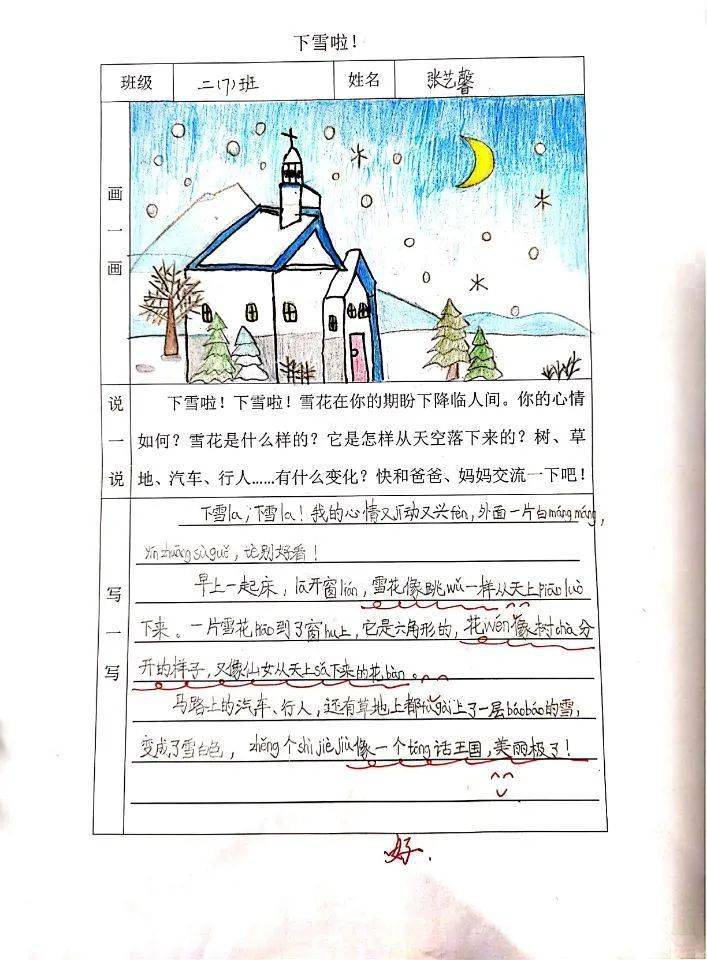 下雪啦！
班级 二(7)班 姓名 张艺馨
画一画
说一说
下雪啦！下雪啦！雪花在你的期盼下降临人间。你的心情
如何？雪花是什么样的？它是怎样从天空落下来的？树、草
地、汽车、行人……有什么变化？快和爸爸、妈妈交流一下吧！
写一写
下雪la，下雪la！我的心情又jī动又兴fèn，外面一片白máng máng，
yín zhuāng sù guǒ，特别好看！
早上一起床，lā开窗lián，雪花像跳wǔ一样从天上piāo luò
下来。一片雪花piāo到了窗hu上，它是六角形的，花wén像树chà分
开的样子，又像仙女从天上sǎ下来的花bàn。
马路上的汽车、行人，还有草地上都fù gài上了一层báo báo的雪，
变成了雪白色，zhěng个shì jiè jiù像一个tóng话王国，美丽极了！
好.